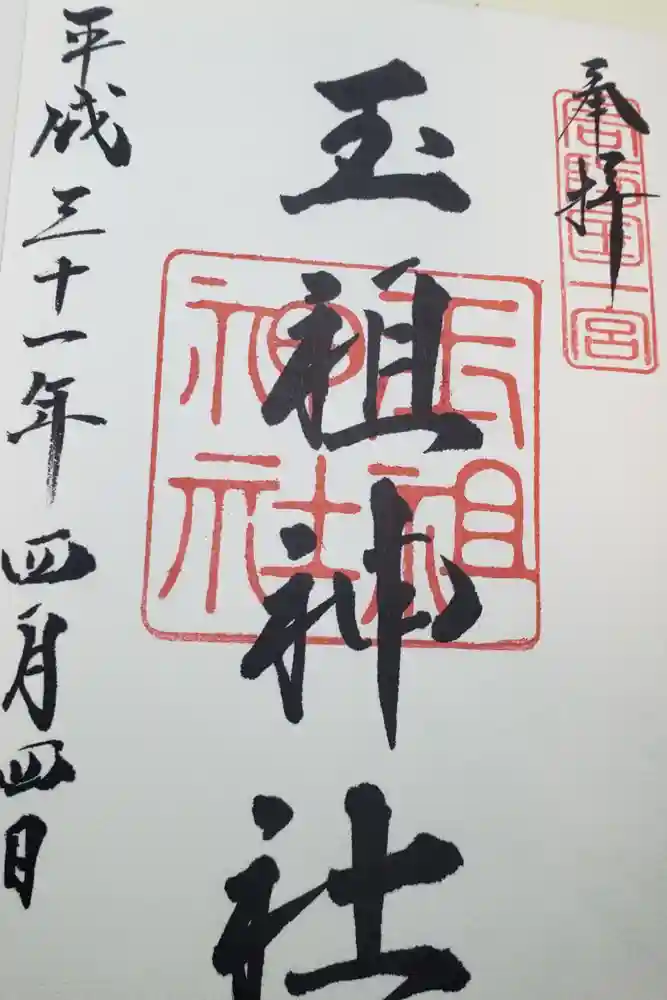 奉拝
周防国一宮
玉祖神社
玉祖
神社
平成三十一年四月四日